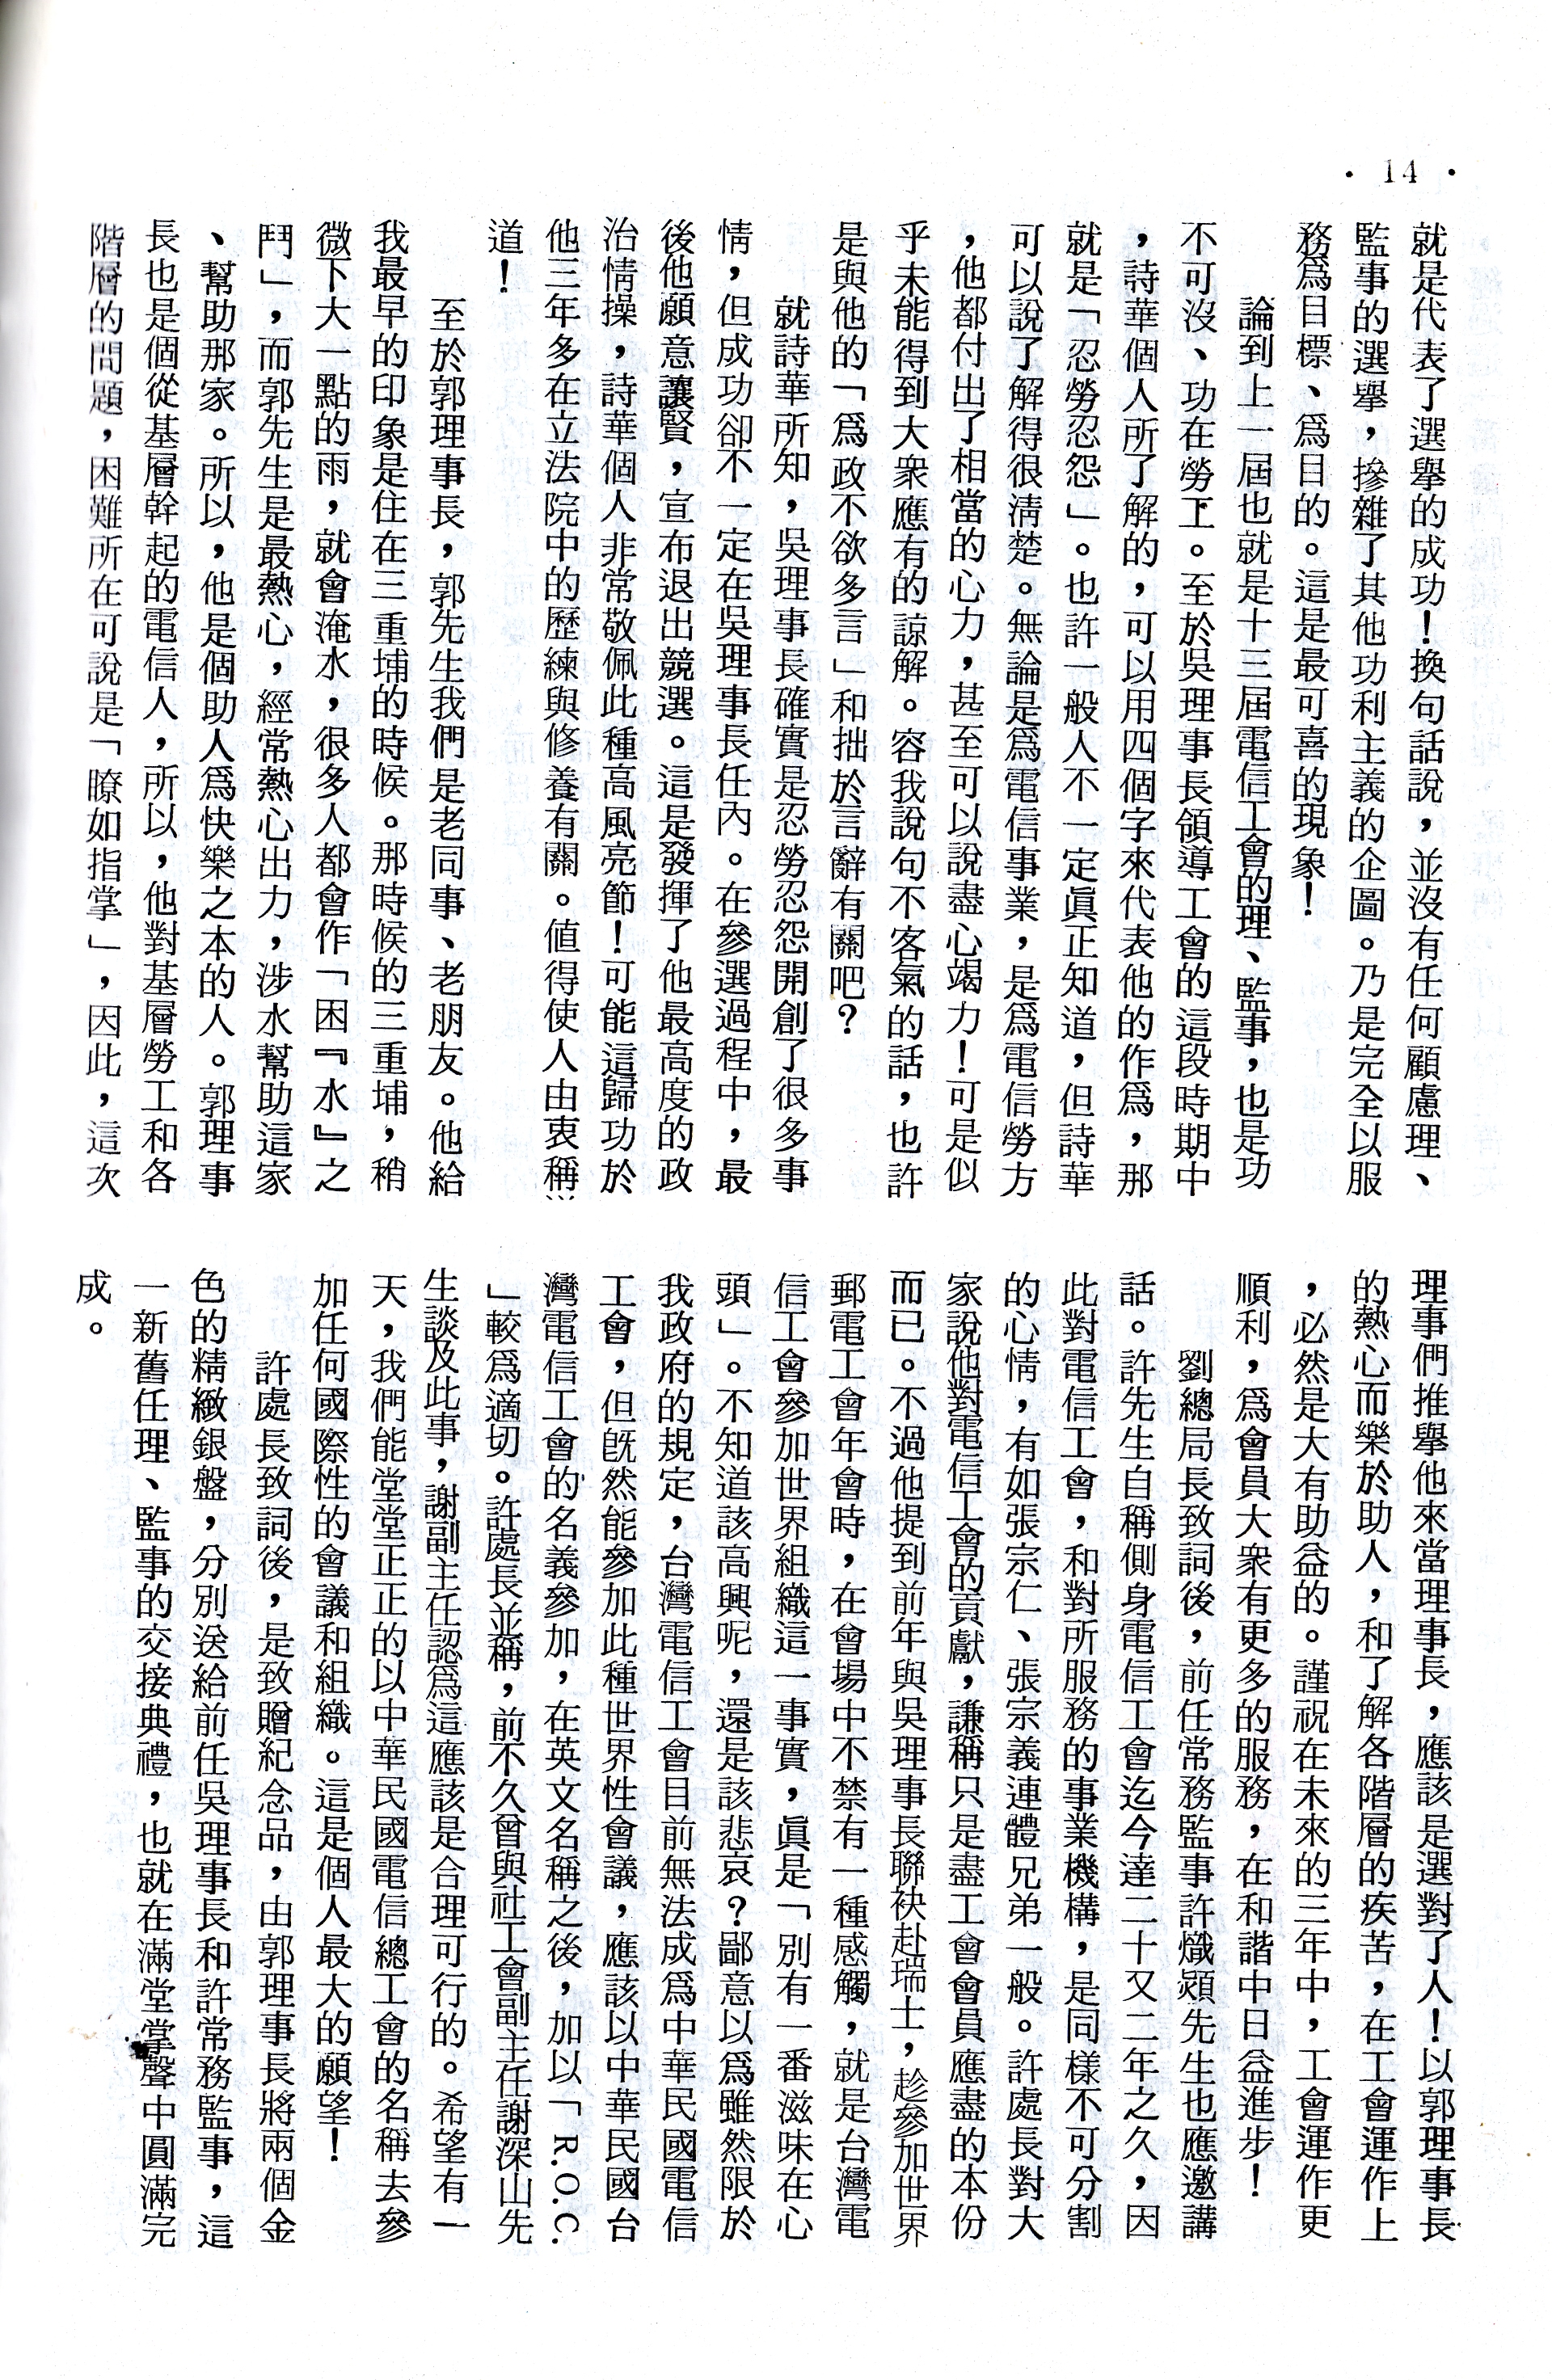 · 14 ·
就是代表了選舉的成功！換句話說，並沒有任何顧慮理、
監事的選舉，摻雜了其他功利主義的企圖。乃是完全以服
務爲目標、爲目的。這是最可喜的現象！
論到上一屆也就是十三屆電信工會的理、監事，也是功
不可沒、功在勞工。至於吳理事長領導工會的這段時期中
，詩華個人所了解的，可以用四個字來代表他的作爲，那
就是「忍勞忍怨」。也許一般人不一定眞正知道，但詩華
可以說了解得很淸楚。無論是爲電信事業，是爲電信勞方
，他都付出了相當的心力，甚至可以說盡心竭力！可是似
乎未能得到大衆應有的諒解。容我說句不客氣的話，也許
是與他的「爲政不欲多言」和拙於言辭有關吧？
就詩華所知，吳理事長確實是忍勞忍怨開創了很多事
情，但成功卻不一定在吳理事長任內。在參選過程中，最
後他願意讓賢，宣布退出競選。這是發揮了他最高度的政
治情操，詩華個人非常敬佩此種高風亮節！可能這歸功於
他三年多在立法院中的歷練與修養有關。値得使人由衷稱
道！
至於郭理事長，郭先生我們是老同事、老朋友。他給
我最早的印象是住在三重埔的時候。那時候的三重埔，稍
微下大一點的雨，就會淹水，很多人都會作「困『水』之
鬥」，而郭先生是最熱心，經常熱心出力，涉水幫助這家
、幫助那家。所以，他是個助人爲快樂之本的人。郭理事
長也是個從基層幹起的電信人，所以，他對基層勞工和各
階層的問題，困難所在可說是「瞭如指掌」，因此，這次
理事們推舉他來當理事長，應該是選對了人！以郭理事長
的熱心而樂於助人，和了解各階層的疾苦，在工會運作上
，必然是大有助益的。謹祝在未來的三年中，工會運作更
順利，爲會員大衆有更多的服務，在和諧中日益進步！
劉總局長致詞後，前任常務監事許熾熲先生也應邀講
話。許先生自稱側身電信工會迄今達二十又二年之久，因
此對電信工會，和對所服務的事業機構，是同樣不可分割
的心情，有如張宗仁、張宗義連體兄弟一般。許處長對大
家說他對電信工會的貢獻，謙稱只是盡工會會員應盡的本份
而已。不過他提到前年與吳理事長聯袂赴瑞士，趁參加世界
郵電工會年會時，在會場中不禁有一種感觸，就是台灣電
信工會參加世界組織這一事實，眞是「別有一番滋味在心
頭」。不知道該高興呢，還是該悲哀？鄙意以爲雖然限於
我政府的規定，台灣電信工會目前無法成爲中華民國電信
工會，但旣然能參加此種世界性會議，應該以中華民國台
灣電信工會的名義參加，在英文名稱之後，加以「R.O.C.
」較爲適切。許處長並稱，前不久曾與社工會副主任謝深山先
生談及此事，謝副主任認爲這應該是合理可行的。希望有一
天，我們能堂堂正正的以中華民國電信總工會的名稱去參
加任何國際性的會議和組織。這是個人最大的願望！
許處長致詞後，是致贈紀念品，由郭理事長將兩個金
色的精緻銀盤，分別送給前任吳理事長和許常務監事，這
一新舊任理、監事的交接典禮，也就在滿堂掌聲中圓滿完
成。